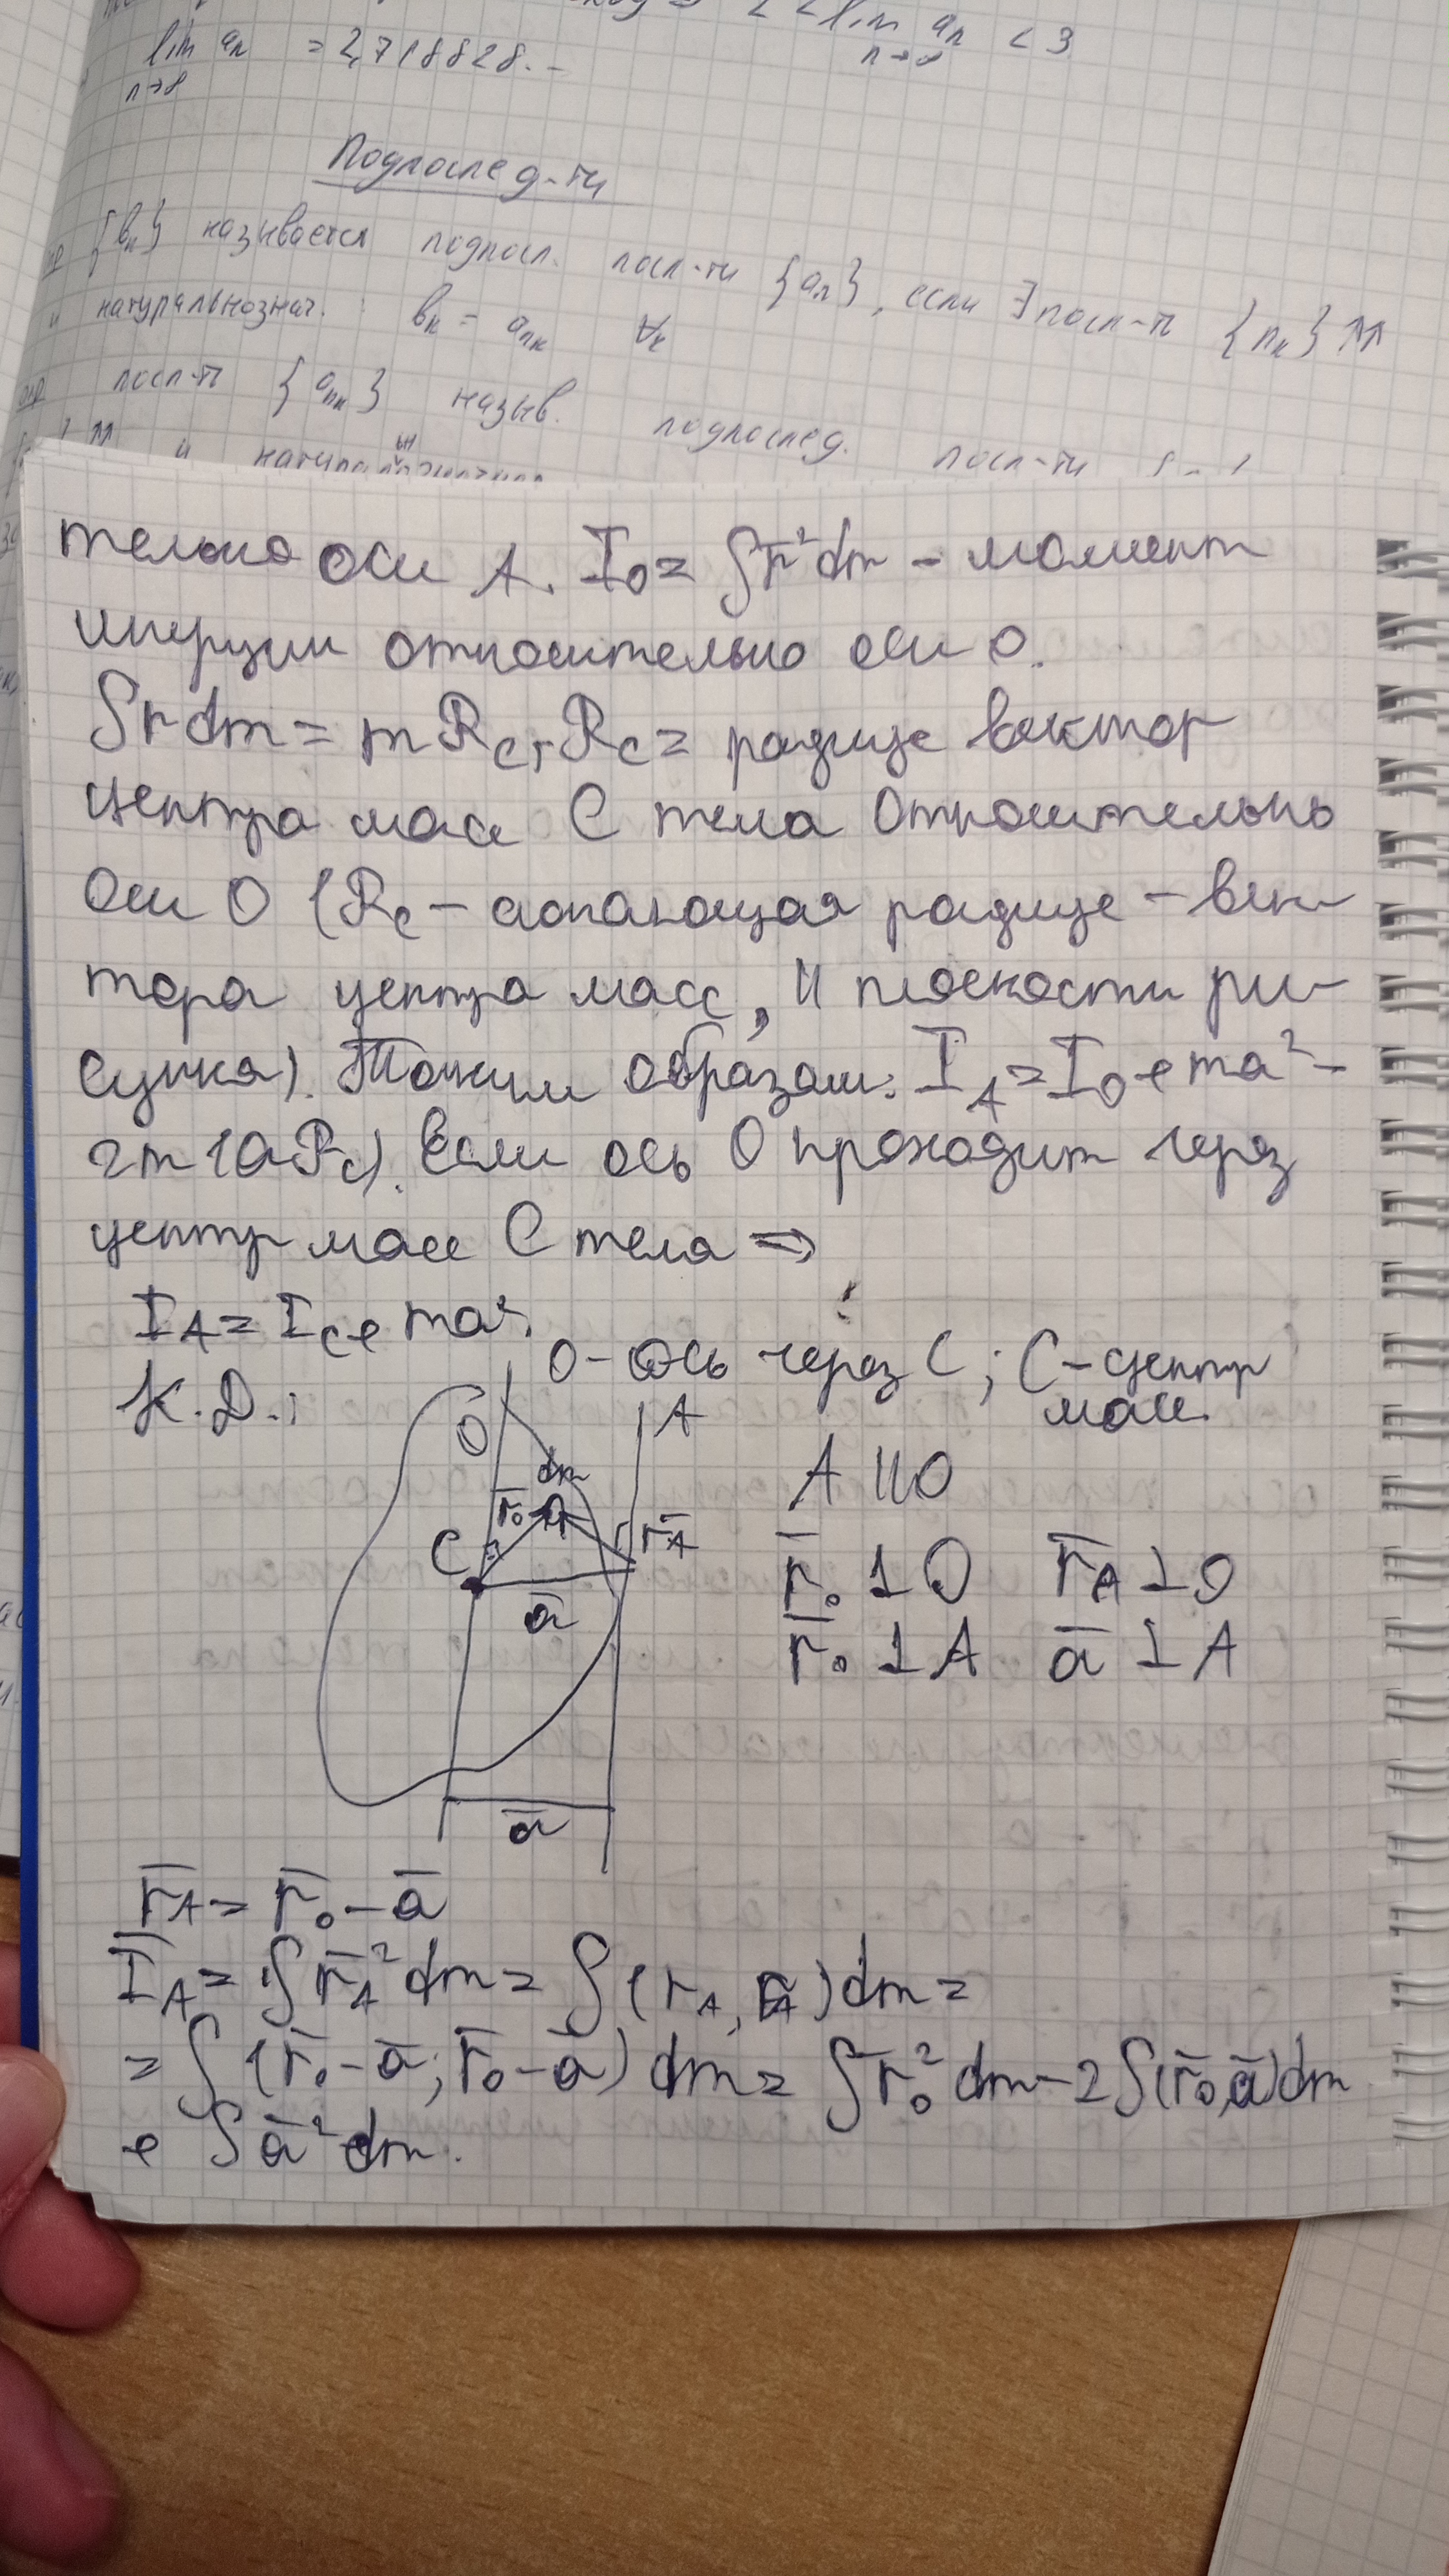 lim aₙ = 2,718828... lim aₙ < 3
n→∞ n→∞
Подпослед-ти
{bₙ} называется подпосл. посл-ти {aₙ}, если ∃ посл-ть {nₖ} ↑↑
и натуральнознач. : bₖ = aₙₖ ∀ₖ
опр посл-ть {aₙₖ} назыв. подпослед. посл-ти
тельно оси A. I₀ = ∫r̄²dm - момент
инерции относительно оси О.
∫r dm = mR_C, R_C = радиус вектор
центра масс С тела относительно
оси О (R_C - составляющая радиус-век-
тора центра масс, || плоскости ри-
сунка). Таким образом: I_A = I_O + ma² -
2m(aR_C). Если ось О проходит через
центр масс С тела ⇒
I_A = I_C + ma².
О-ось через С; С-центр
масс.
К.Д.:
O A
dm
r̄₀ r̄_A
C
ā
ā
A || O
r̄₀ ⊥ O r̄_A ⊥ O
r̄₀ ⊥ A ā ⊥ A
r̄_A = r̄₀ - ā
I_A = ∫r̄_A²dm = ∫(r_A, r̄_A)dm =
= ∫(r̄₀ - ā; r̄₀ - ā)dm = ∫r̄₀²dm - 2∫(r̄₀,ā)dm
+ ∫ā²dm.